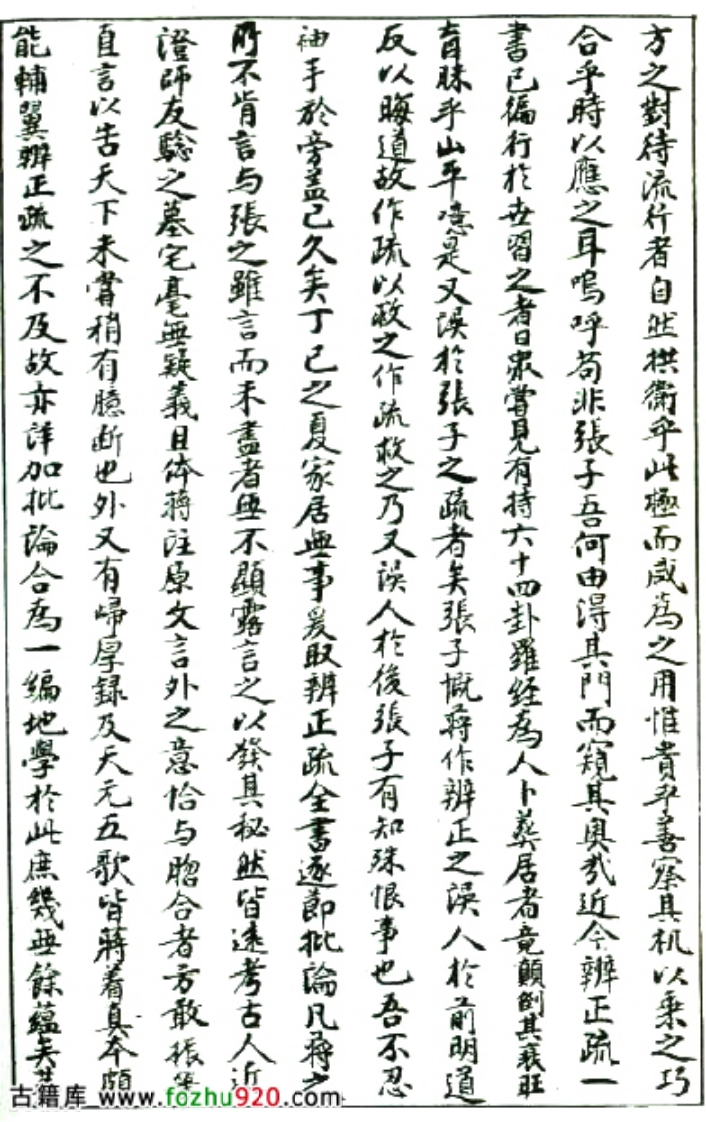 方之對待流行者自然拱衛乎此極而咸為之用惟貴乎善察其机以乘之巧
合乎時以應之耳嗚呼苟非張子吾何由得其門而窺其奧哉近今辨正疏一
書已徧行於世習之者日眾嘗見有持六十四卦羅經為人卜葬居者竟顛倒其衰旺
盲昧乎山平噫是又誤於張子之疏者矣張子慨蔣作辨正之誤人於前明道
反以晦道故作疏以救之作疏救之乃又誤人於後張子有知殊恨事也吾不忍
袖手於旁蓋已久矣丁巳之夏家居無事爰取辨正疏全書逐節批論凡蔣之
所不肯言与張之雖言而未盡者無不顯露言之以發其秘然皆遠考古人近
澄師友驗之墓宅毫無疑義且体蔣注原文言外之意恰与脗合者方敢振筆
直言以告天下未嘗稍有臆斷也外又有歸厚録及天元五歌皆蔣着真本頗
能輔翼辨正疏之不及故亦詳加批論合為一編地學於此庶幾無餘蘊矣
古籍库 www.fozhu920.com